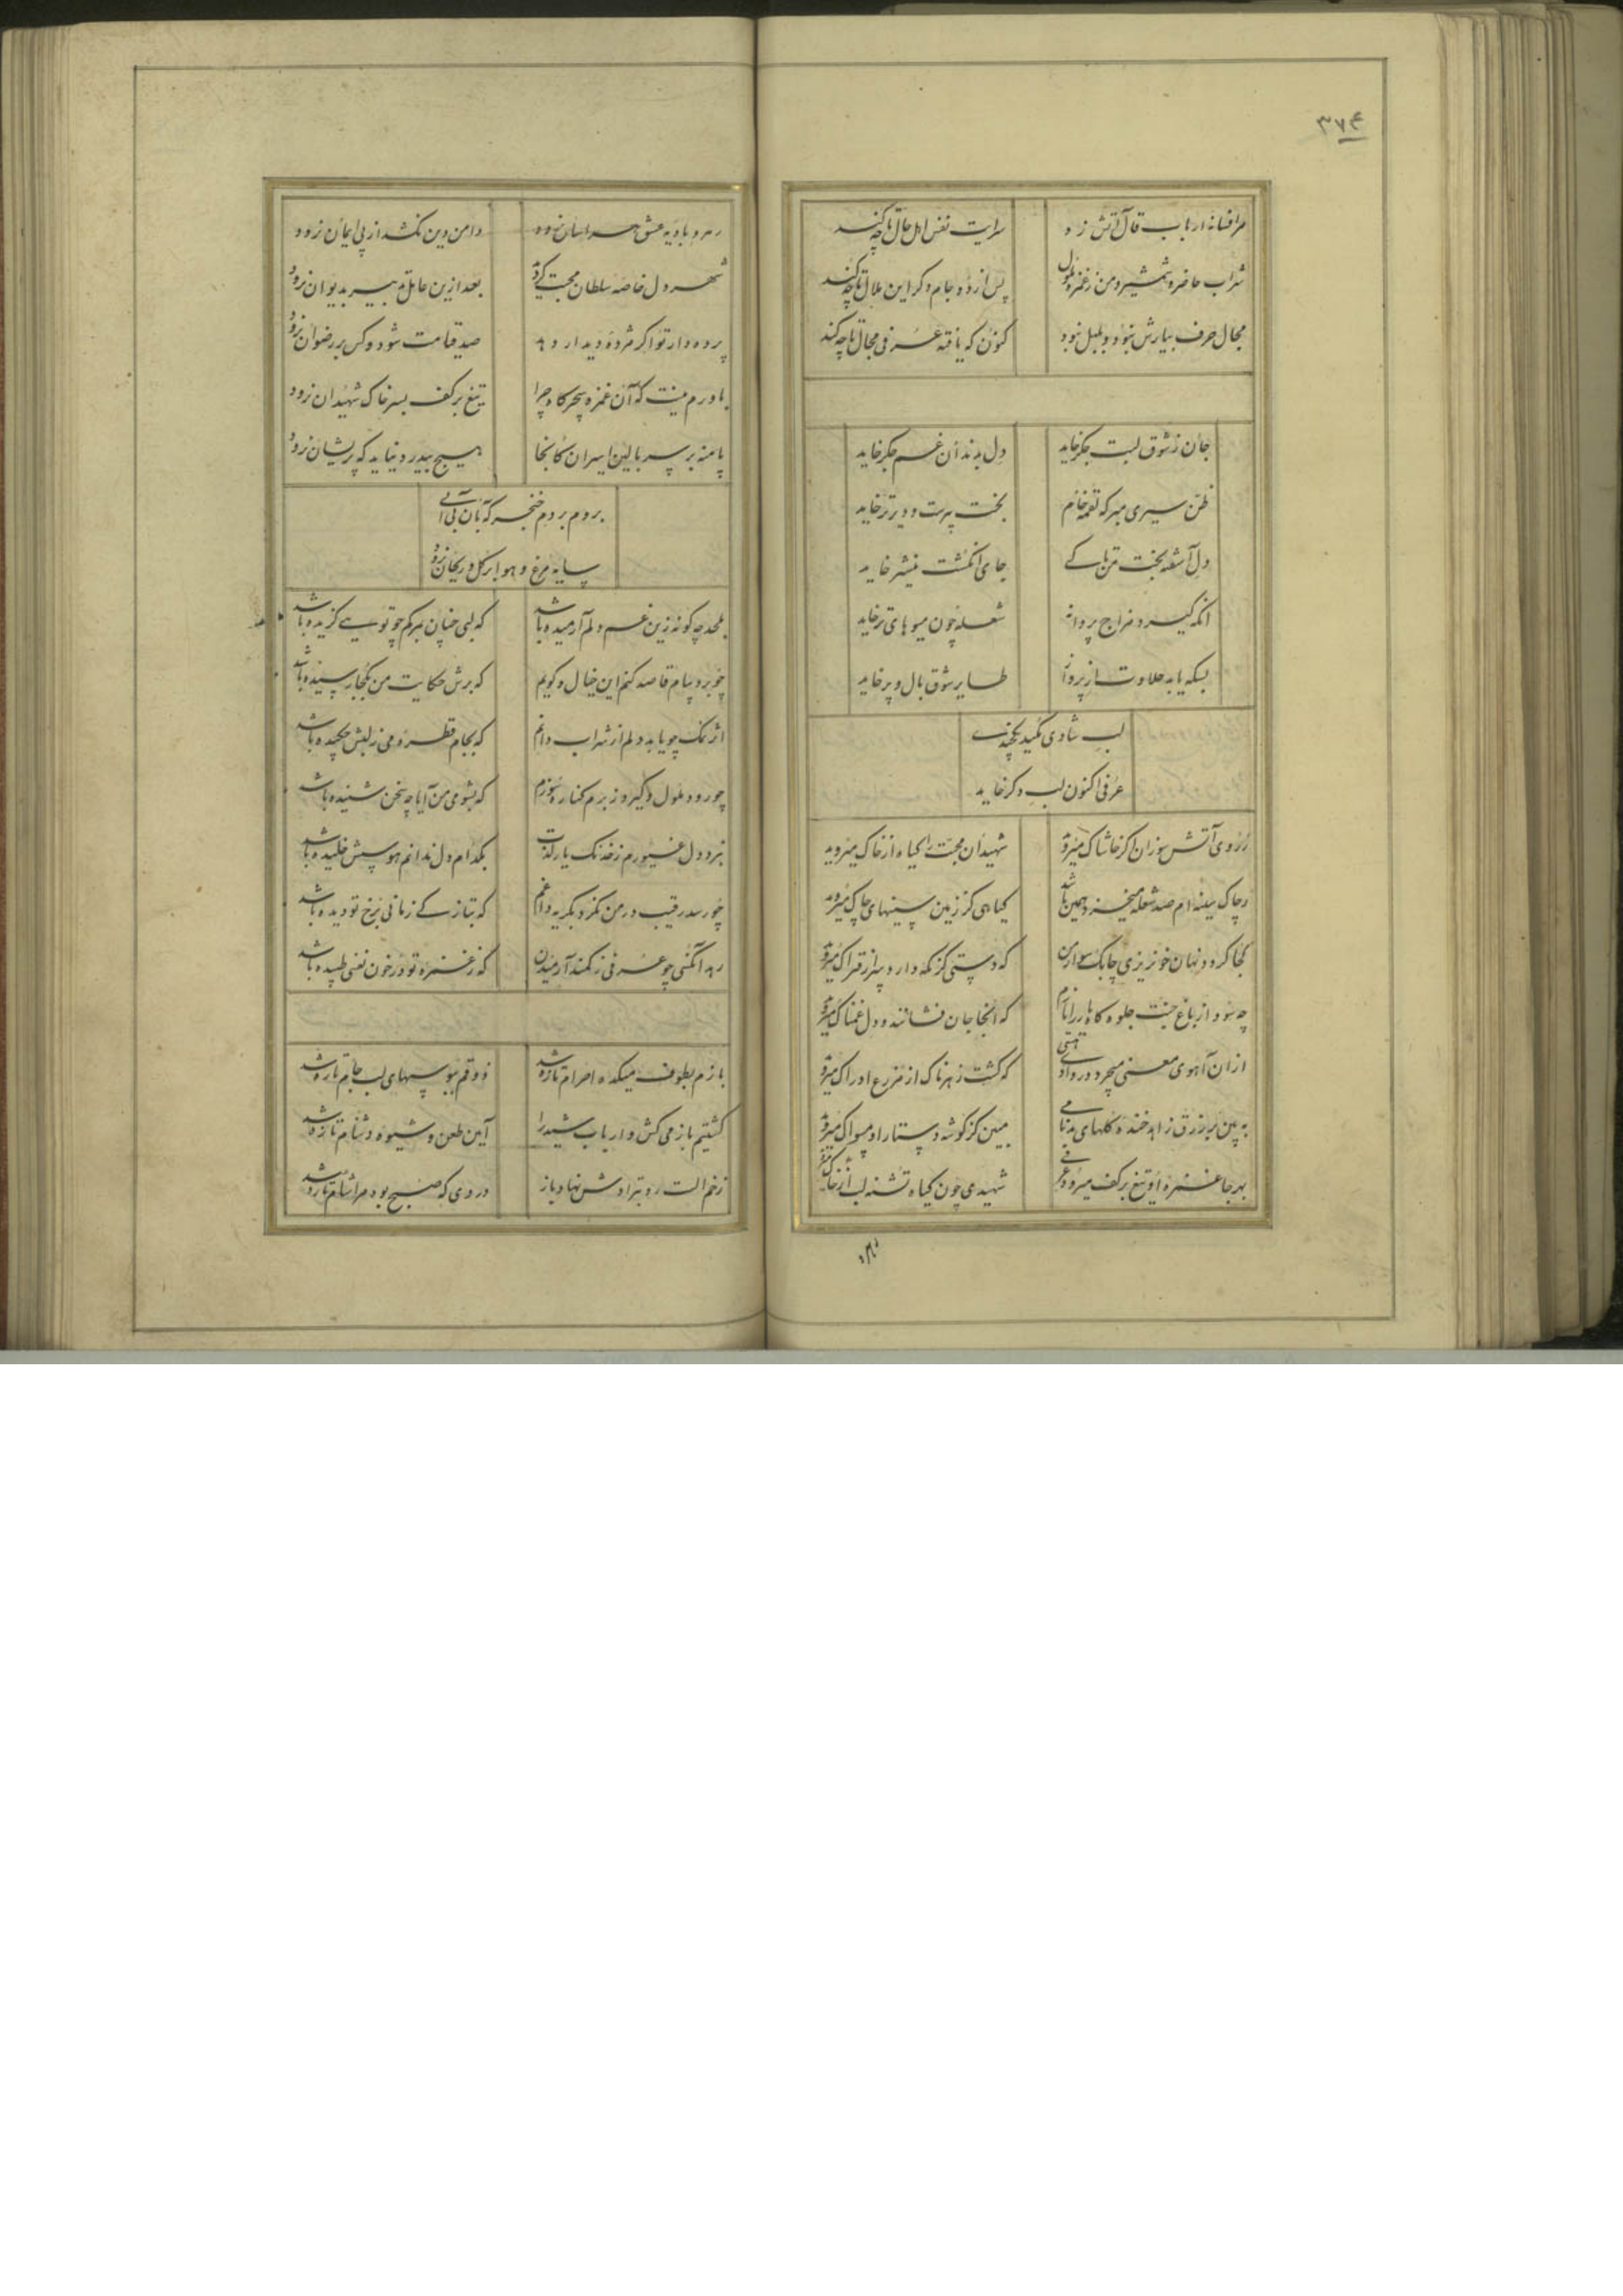 ۳۷۴
مرا فسانهٔ ارباب قال آتش زد
سرایت نفس اهل حال تا چه کند
شراب حاضر و شمشیر و من ز غمزه ملول
پس از دو جام دگر این ملال تا چه کند
مجال حرف بیارش نبود و بلبل نبود
کنون که یافته عرفی مجال تا چه کند
جان ز شوق لبت جکر خاید
دل بدندان غم جکر خاید
ظن سیری مبر که لقمه خام
بخت پرست و دیرتر خاید
دل آشفته بخت تن تا کے
جای انکشت نیشتر خاید
انکه کیرد مزاج پروانه
شعله چون میوهای تر خاید
بسکه یابد حلاوت از پرواز
طایر شوق بال و پر خاید
لب شادی نکید بچند
عرفی اکنون لب دکر خاید
ز روی آتش سوزان اکر خاشاک میروید
شهیدان محبت را کیاه از خاک میروید
ز چاک سینه ام صد شعله میخیزد همین باشد
کیاهی کز زمین سینهای چاک میروید
کجا کردد نهان خونریزی چابک سوار من
که دستی کز نکه دارد سر از فتراک میروید
چه سود از باغ جنت جلوه کاه یار را نازم
که انجا جان فشانند و دل غمناک میروید
ازان آهوی معنی میچرد در وادی هستی
که کشت زهرناک از مزرع ادراک میروید
به بین بر زرق زاهد خنده کلهای بدنامی
مبین کز کوشه دستار او مسواک میروید
بهر جا غمزه او تیغ بر کف میرود عرفی
شهیدی چون کیاه تشنه لب از خاک میروید
رهرو بادیه عشق هراسان نرود
دامن دین نکشد از پی ایمان نرود
شهر دل خاصه سلطان محبت کردند
بعد ازین عامل ما بیر بدیوان نرود
پرده دار تو اکر مژده دیدار دهد
صد قیامت شود و کس بر رضوان نرود
باورم نیست که آن غمزه سحرکاه چرا
تیغ بر کف بسر خاک شهیدان نرود
پا منه بر سر بالین اسیران کانجا
هیچ بیدرد نیاید که پریشان نرود
بروم بر دم خنجر که بآن بی آبی
سایه مرغ و هوا بر کل و ریحان نرود
بلحد چکونه زین غم دلم آرمیده باشد
که لبی چنان بمرکم چو توے کزیده باشد
چو برد پیام قاصد کنم این خیال و کویم
که برش حکایت من بکجا رسیده باشد
اثر نمک چو یابد دلم از شراب دانم
که بجام قطره می ز لبش چکیده باشد
چو رود ملول و کیرد ز برم کناره سوزم
که بشومی من آیا چه سخن شنیده باشد
نبرد دل غیورم ز خدنک یار لذت
بکدام دل ندانم هوسش خلیده باشد
چو رسد رقیب و در من نکرد بکریه دانم
که بتازکے زمانی برخ تو دیده باشد
رهد آنکسی چو عرفی ز کمند آرمیدن
که ز غمزه تو در خون نفسی طپیده باشد
بازم بطوف میکده احرام تازه شد
ذوقم ببوسهای لب جام تازه شد
کشتیم باز می کش و ارباب شید را
آین طعن و شیوه دشنام تازه شد
زخم الست رو بتراوش نهاد باز
دردی که صبح بود مرا شام تازه شد